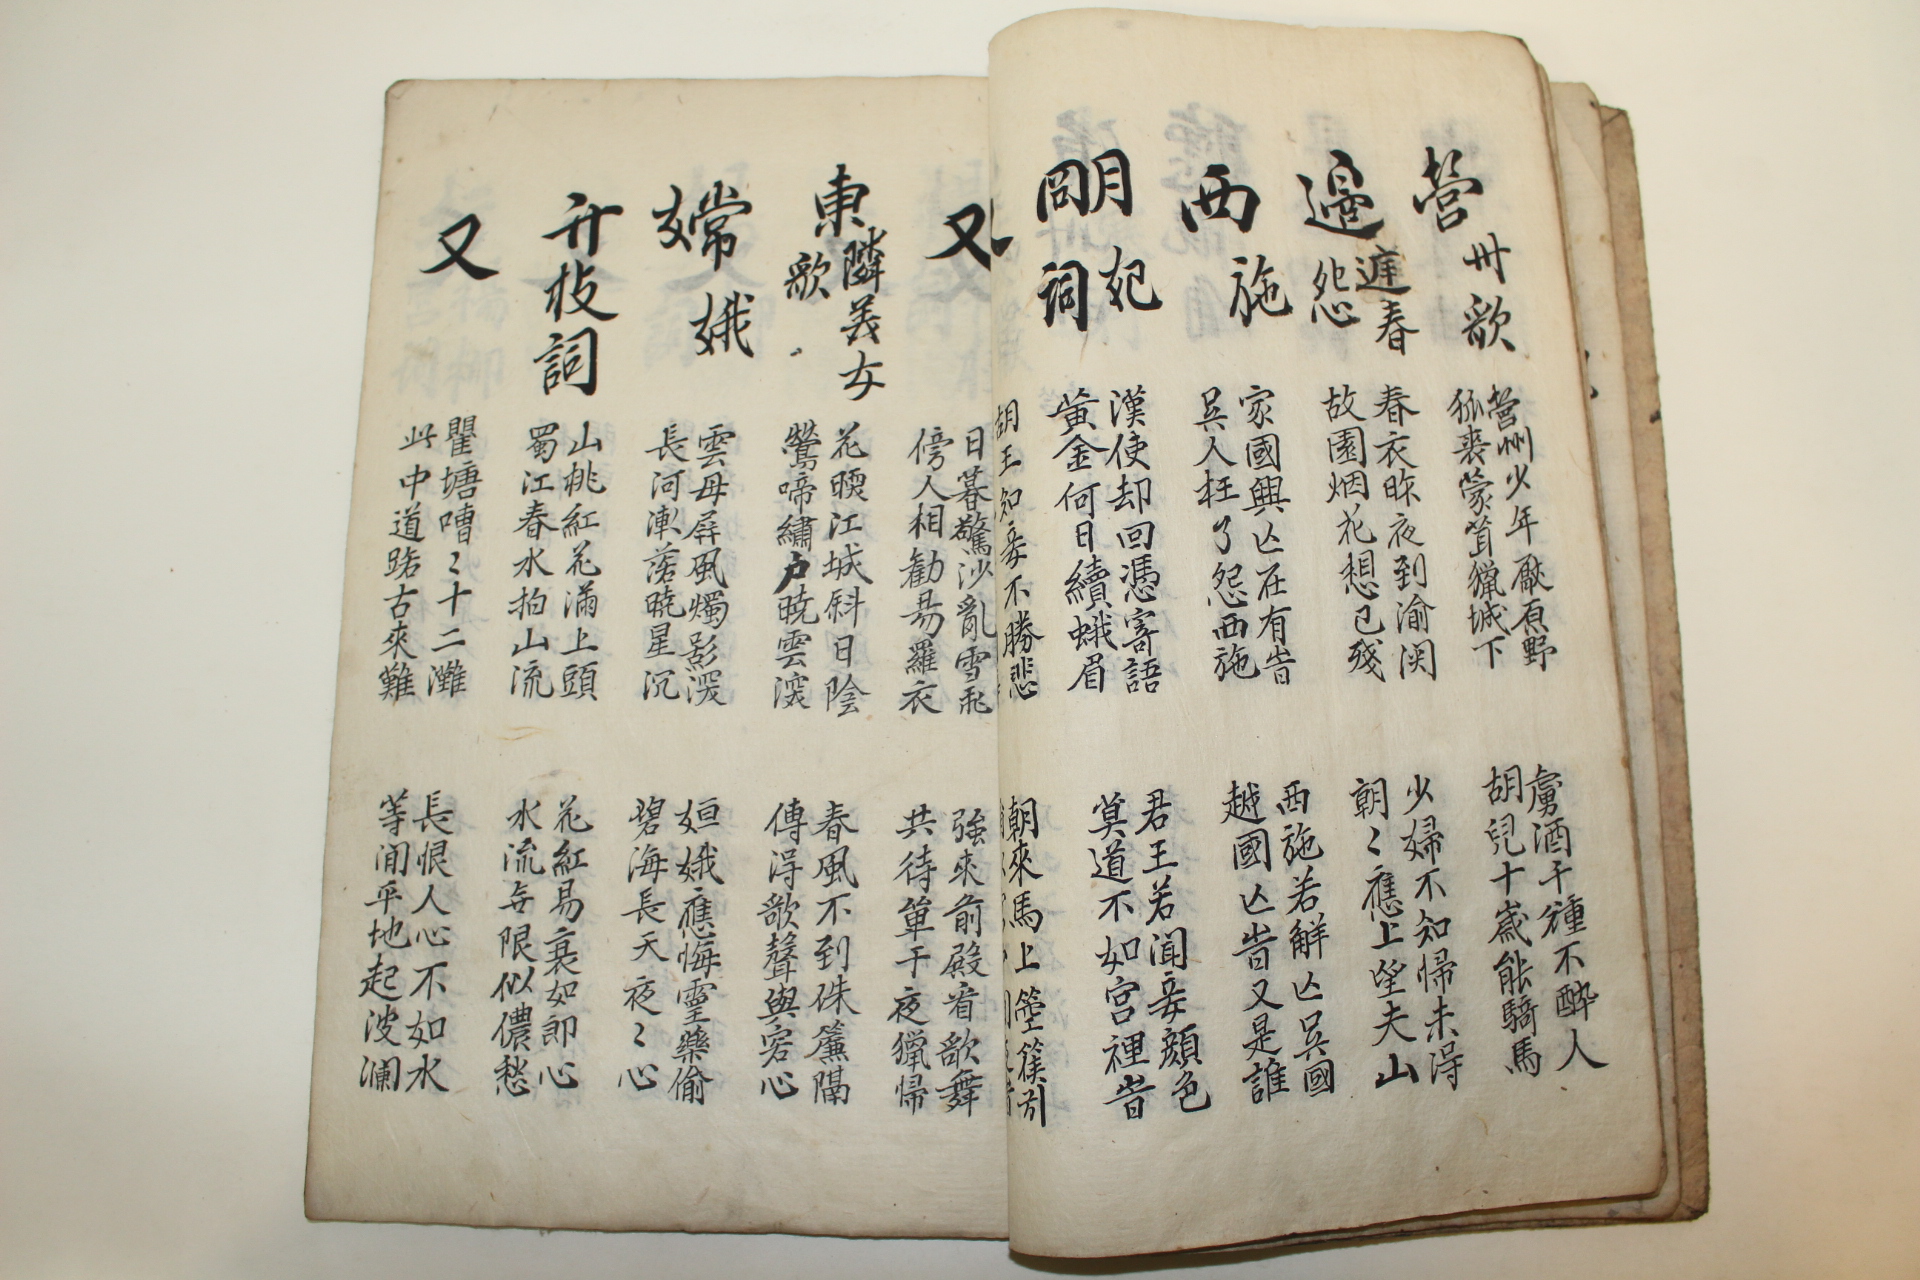 營州歌
營州少年厭原野
狐裘蒙茸獵城下
虜酒千鍾不醉人
胡兒十歲能騎馬
邊庭春怨
春衣昨夜到渝関
故園烟花想已殘
少婦不知帰未淂
朝〻應上望夫山
西施
家國興亾在有旹
吳人枉了怨西施
西施若解亾吳國
越國亾旹又是誰
明妃詞
漢使却回憑寄語
黃金何日續蛾眉
君王若闻妾顔色
莫道不如宮裡旹
又
胡王知妾不勝悲
朝來馬上箜篌引
又
日暮驚沙亂雪飛
傍人相勸昜羅衣
強來前殿看歌舞
共待單于夜獵帰
東隣美女歌
花暖江城斜日陰
鶯啼繡戶暁雲深
春風不到珠簾隔
傳淂歌聲與客心
嫦娥
雲母屛風燭影深
長河漸落暁星沉
姮娥應悔靈藥偷
碧海長天夜〻心
竹枝詞
山桃紅花滿上頭
蜀江春水拍山流
花紅易衰如郎心
水流無限似儂愁
又
瞿塘嘈〻十二灘
此中道路古來難
長恨人心不如水
等闲平地起波瀾